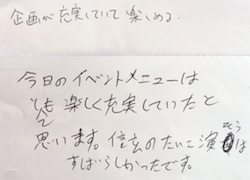 企画が充実していて楽しめる。
今日のイベントメニューは
とても楽しく充実していたと
思います。信玄のたいこ演そうは
すばらしかったです。